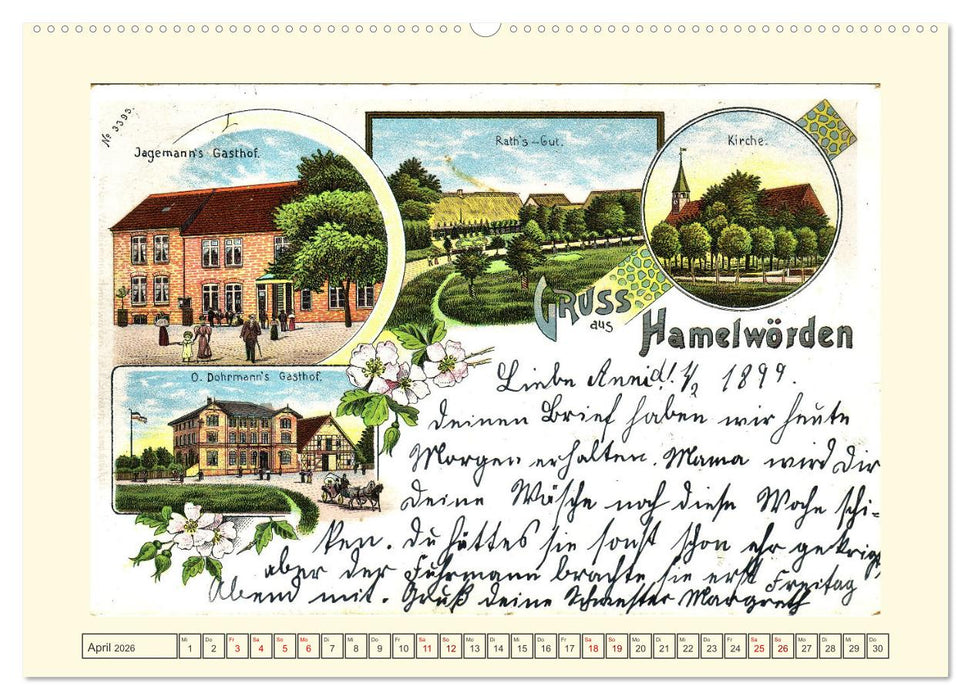 No 3393.
Jagemann's Gasthof.
Rath's-Gut.
Kirche.
Gruss
aus
Hamelwörden
O. Dohrmann's Gasthof.
Liebe d. 1/2 1899.
Deinen Brief haben wir heute
Morgen erhalten. Mama wird Dir
Deine Wäsche noch diese Woche schi-
ken. Du hättes sie sonst schon ehr gekrigt,
aber der Fuhrmann brachte sie erst Freitag
Abend mit. Gruß deine Schwester Margreth
April 2026
Mi Do Fr Sa So Mo Di Mi Do Fr Sa So Mo Di Mi Do Fr Sa So Mo Di Mi Do Fr Sa So Mo Di Mi Do
1 2 3 4 5 6 7 8 9 10 11 12 13 14 15 16 17 18 19 20 21 22 23 24 25 26 27 28 29 30